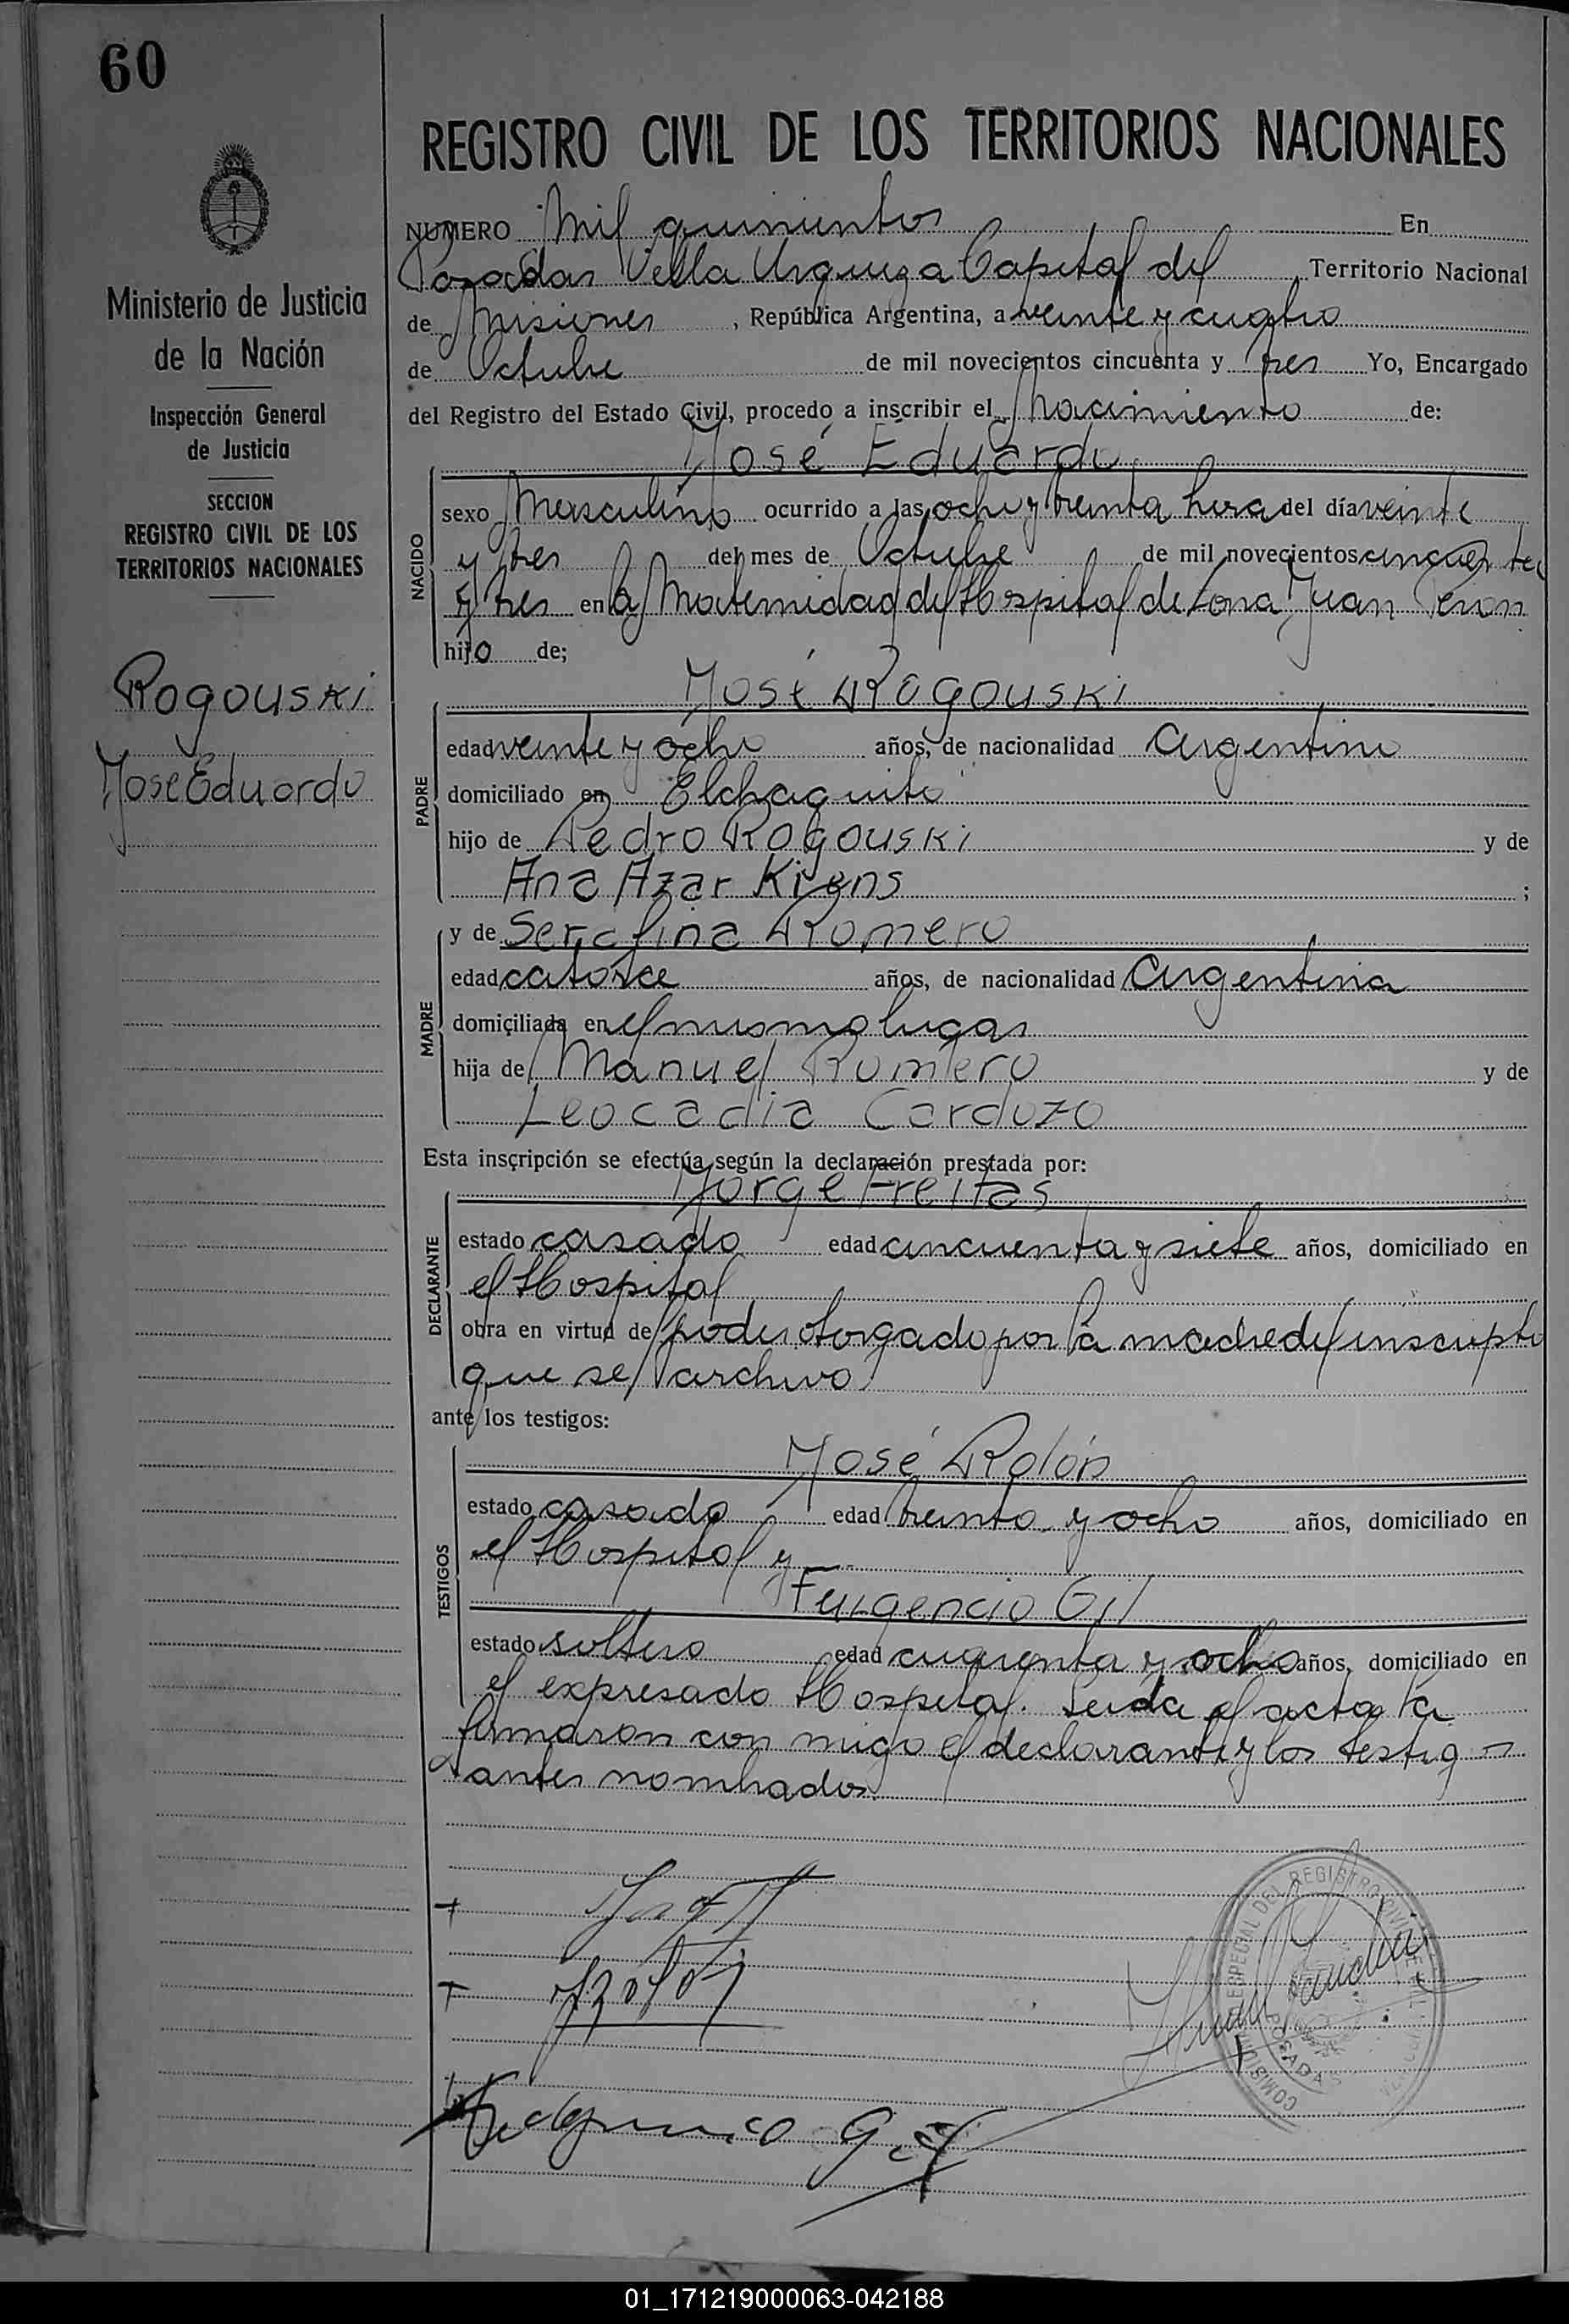 60
Ministerio de Justicia
de la Nación
Inspección General
de Justicia
SECCION
REGISTRO CIVIL DE LOS
TERRITORIOS NACIONALES
Rogouski
José Eduardo
REGISTRO CIVIL DE LOS TERRITORIOS NACIONALES
NUMERO Mil quinientos En
Posadas Villa Urquiza Capital del Territorio Nacional
de Misiones, República Argentina, a veinte y cuatro
de Octubre de mil novecientos cincuenta y tres Yo, Encargado
del Registro del Estado Civil, procedo a inscribir el Nacimiento de:
José Eduardo
NACIDO
sexo Masculino ocurrido a las ocho y treinta hora del día veinte
y tres del mes de Octubre de mil novecientos cincuenta
y tres en la Maternidad del Hospital de Zona Juan Peron
hijo de;
José Rogouski
PADRE
edad veinte y ocho años, de nacionalidad Argentino
domiciliado en El chaquito
hijo de Pedro Rogouski y de
Ana Azar Kigens;
MADRE
y de Serafina Romero
edad catorce años, de nacionalidad Argentina
domiciliada en el mismo lugar
hija de Manuel Romero y de
Leocadia Cardozo
Esta inscripción se efectúa según la declaración prestada por:
Jorge Freitas
DECLARANTE
estado casado edad cincuenta y siete años, domiciliado en
el Hospital
obra en virtud de poder otorgado por la madre del inscripto
que se archivo
ante los testigos:
José Rolón
TESTIGOS
estado casado edad treinta y ocho años, domiciliado en
el Hospital y
Fulgencio Gil
estado soltero edad cuarenta y ocho años, domiciliado en
el expresado Hospital. Leida el acta la
firmaron con migo el declarante y los testigos
antes nombrados.
JRolón
Fulgencio Gil
COMISIONADO ESPECIAL DEL REGISTRO CIVIL
POSADAS
01_171219000063-042188